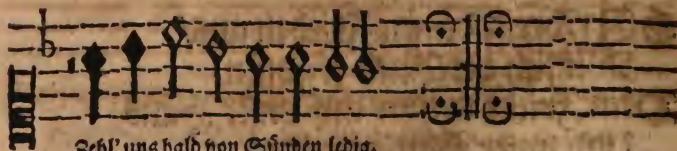 Zehl' uns bald von Sünden ledig.